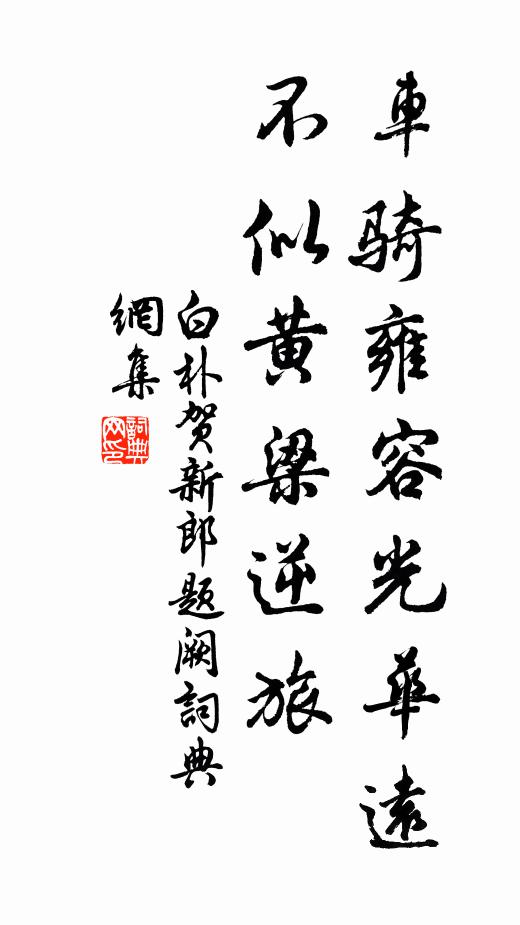 車骑雍容光華遠
不似黄梁逆旅
白朴贺新郎题阙詞典
網集
詞典
网印